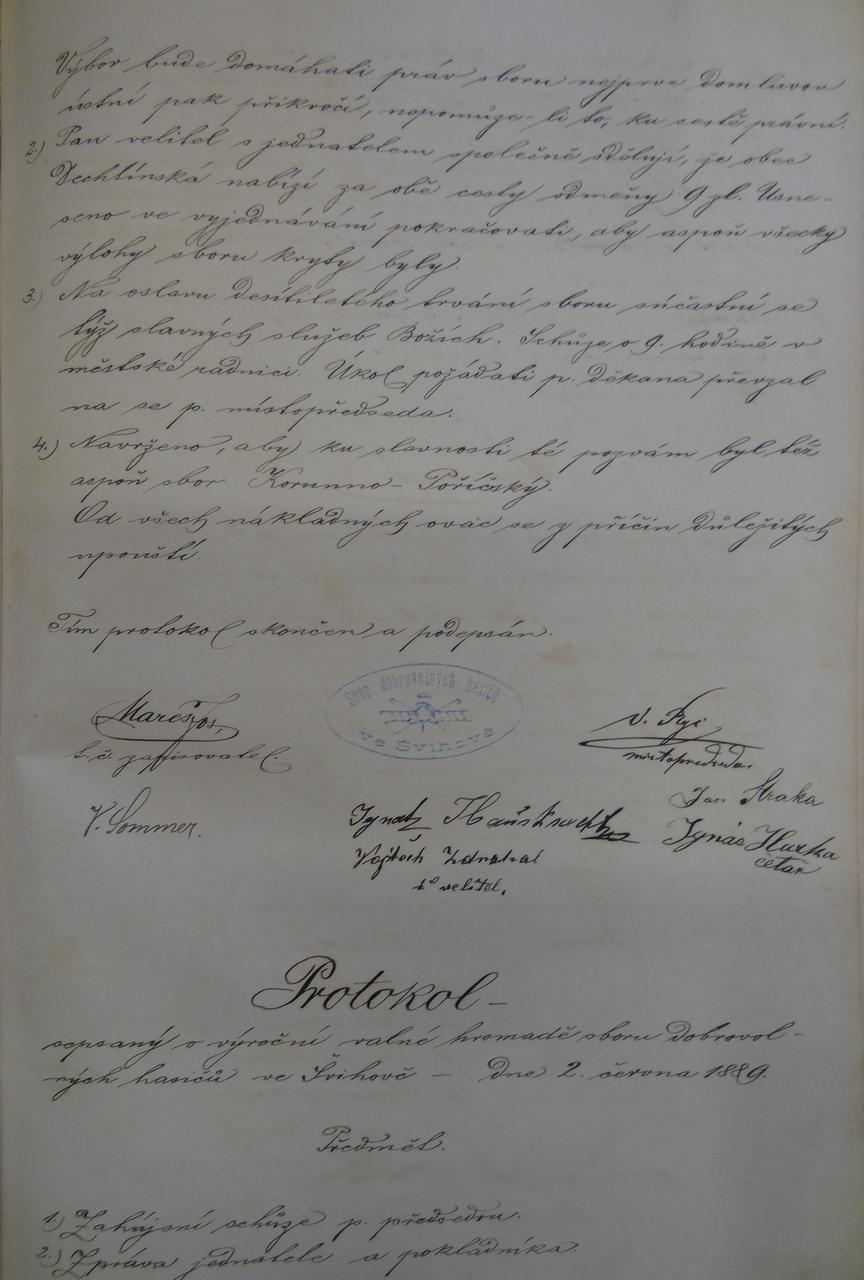 Výbor bude domáhati práv sboru nejprve domluvou
ústní pak přikročí, nepomůže-li to, ku cestě právní.
2.) Pan velitel s jednatelem společně sdělují, že obec
Vechtínská nabízí za obě cesty odměny 9 zl. Usne-
seno ve vyjednávání pokračovati, aby aspoň všecky
výlohy sboru kryty byly.
3.) Na oslavu desítiletého trvání sboru súčastní se
týž slavných služeb Božích. Schůze o 9. hodině v
městské radnici. Úkol požádati p. děkana převzal
na se p. místopředseda.
4.) Navrženo, aby ku slavnosti té pozván byl též
aspoň sbor Korunno-Poříčský.
Od všech nákladných ovac se z příčin důležitých
upouští.
Tím protokol skončen a podepsán.
Mareš Jos,
t.č. zapisovatel.
Sbor dobrovolných hasičů
ve Švihově
místopředseda.
V. Sommer.
Jan Straka
Ignatz
Ignás Hurka
četař
Vojtěch
velitel.
Protokol-
sepsaný o výroční valné hromadě sboru dobrovol-
ných hasičů ve Švihově - dne 2. června 1889.
Předmět.
1.) Zahájení schůze p. předsedou.
2.) Zpráva jednatele a pokladníka.